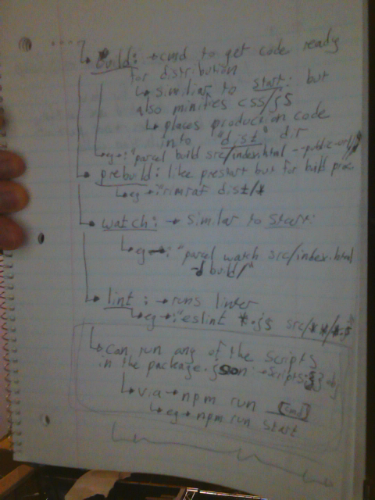 build: → cmd to get code ready
for distribution
↳ similiar to start: but
also minifies css/js
↳ places production code
into "dist" dir
eg →: "parcel build src/index.html --public-url
prebuild: like prestart but for build proc
↳ eg →: "rimraf dist/*
watch: → similar to start:
↳ eg →: "parcel watch src/index.html
-d build/"
lint: → runs linter
↳ eg →: "eslint *.js src/**/*.js
↳ can run any of the scripts
in the package.json: → scripts: {} obj
↳ via → npm run [cmd]
↳ eg → npm run start